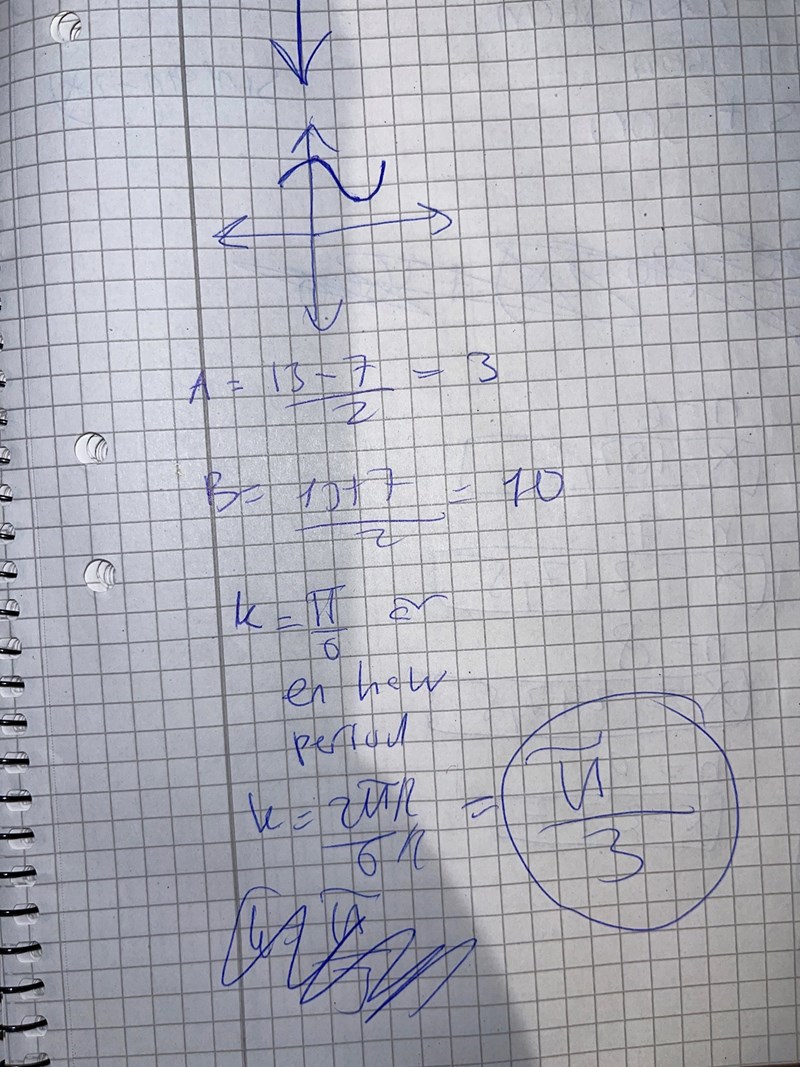 A = 13 - 7 / 2 = 3
B = 13 + 7 / 2 = 10
k = π / 6 er
en halv
period
k = 2π / 6 = π / 3